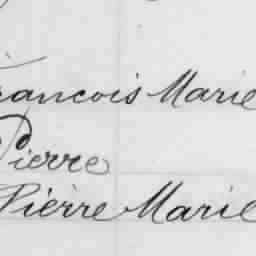 Francois Marie
Pierre
Pièrre Marie